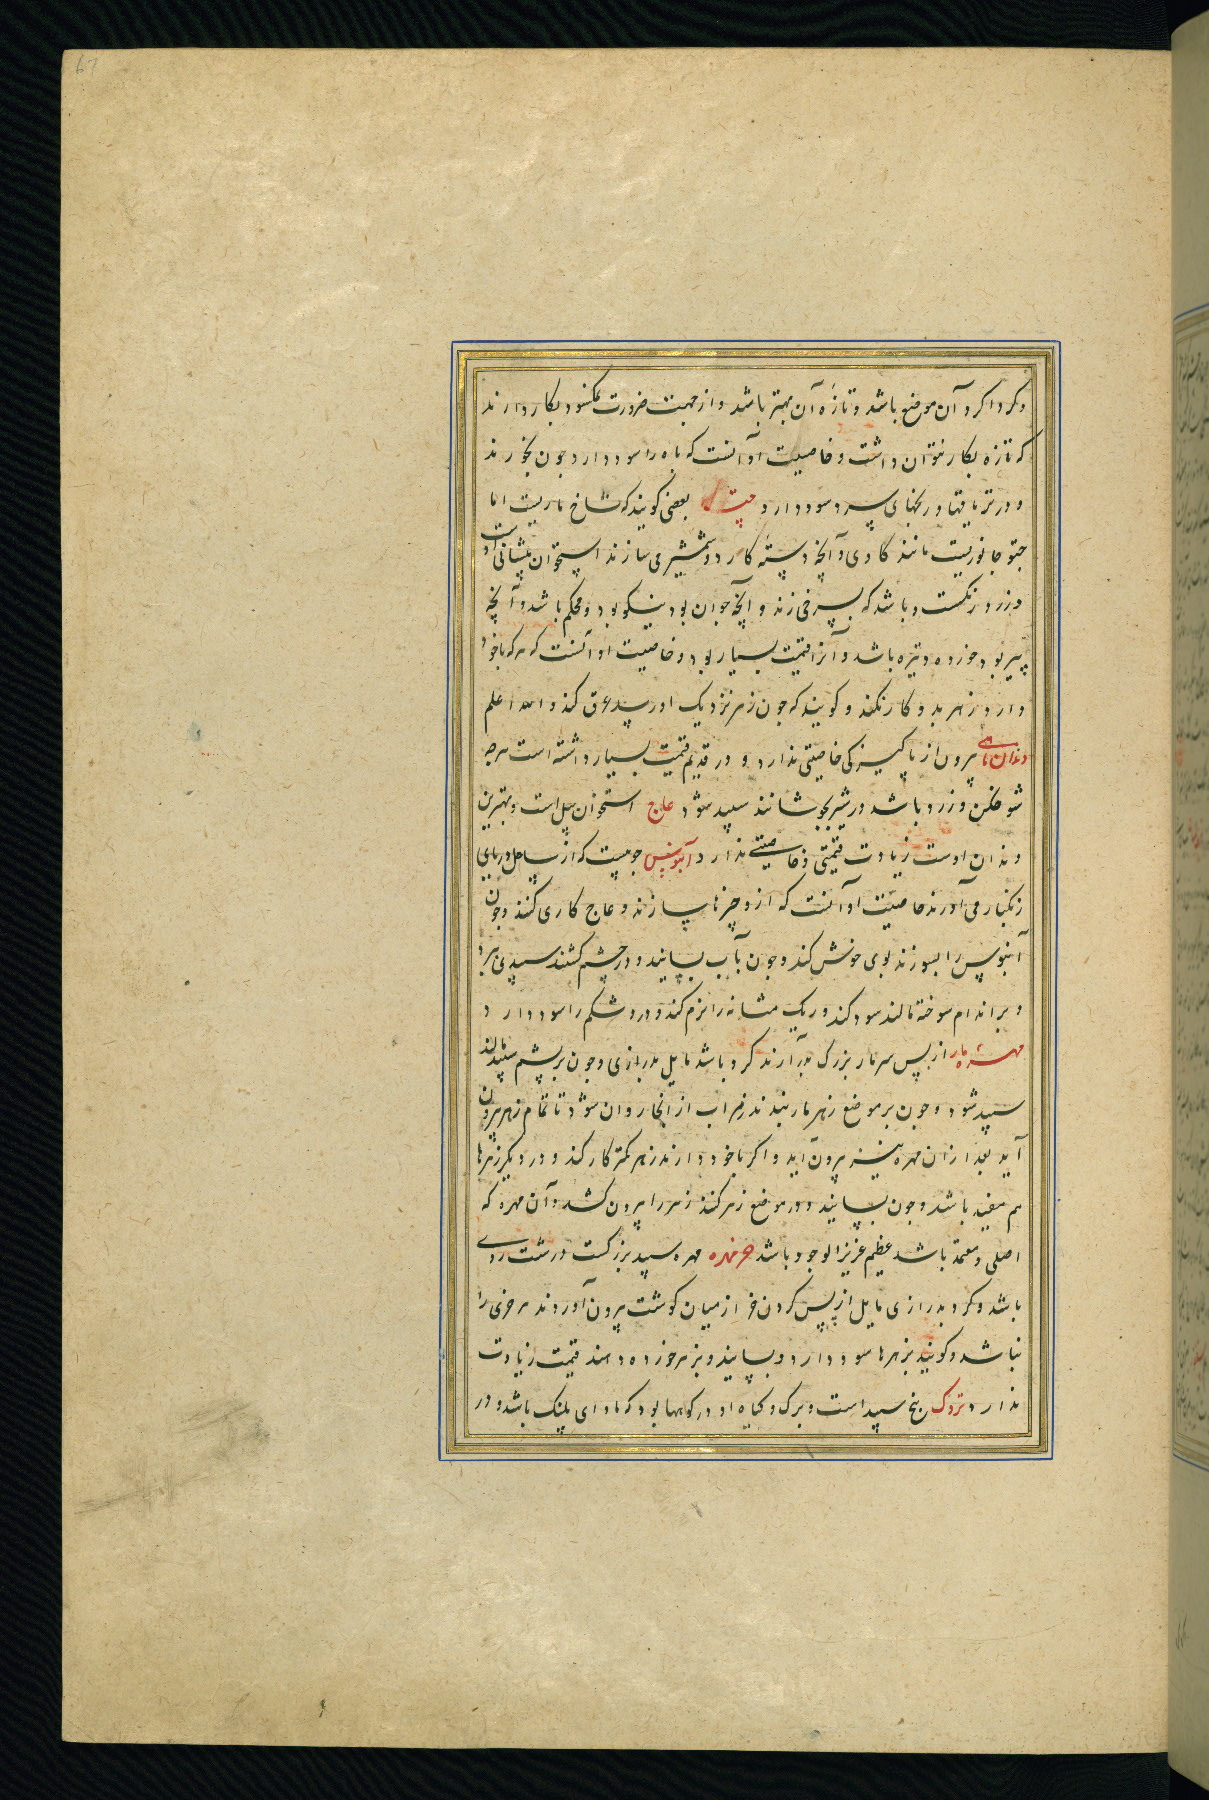 67
وکرداکرد آن موضع باشد و تازه آن بهتر باشد و از جهت ضرورت نمکسود بکار دارند
که تازه بکار نتوان داشت و خاصیت او آنست که باه را سود دارد جون بخورند
و در تریاقها و رنجهای سرد سود دارد بعضی کویند که شاخ ماریست اما
ختو جانوریست مانند کاوی و آنچه دسته کارد و شمشیر می سازند استخوان پیشانی اوست
و زرد رنکست و باشد که بسرخی زند و آنچه جوان بود نیکو بود و محکم باشد و آنچه
پیر بود خورده و تیره باشد و آنرا قیمت بسیار بود و خاصیت او آنست که هر که با خود
دارد زهر بدو کار نکند و کویند که جون زهر نزدیک او رسد عرق کند والله اعلم
دندان ماهی بیرون از پاکیزکی خاصیتی ندارد و در قدیم قیمت بسیار داشته است هرجه
شوخکن و زرد باشد در شیر بجوشانند سپید شود عاج استخوان پیل است و بهترین
دندان اوست زیادت قیمتی و خاصیتی ندارد آبنوس جوبیست که از ساحل دریای
زنکبار می آورند خاصیت او آنست که ازو چیزها سازند و عاج کاری کنند و جون
آبنوس را بسوزند بوی خوش کند و جون بآب بسایند و در چشم کشند سپیدی ببرد
و بر اندام سوخته مالند سود کند و ریک مثانه را نرم کند و درد شکم را سود دارد
مهره مار از پس سر مار بزرک بدر آرند کرد باشد مایل بدرازی و جون بر پشم سیاه مالند
سپید شود و جون بر موضع زهر مار نهند زهراب از آنجا روان شود تا تمام زهر بیرون
آید بعد از آن مهره نیز بیرون آید و اکر با خود دارند زهر کمتر کار کند و در دیکر زهرها
هم مفید باشد و جون بسایند و در موضع زهر کنند زهر را بیرون کشد و آن مهره که
اصلی و معتمد باشد عظیم عزیز الوجود باشد خرمهره مهره سپید بزرکست درشت روی
باشد و کرد بدرازی مایل از پس کردن خر از میان کوشت بیرون آورند و هر خری را
نباشد و کویند بزهرها سود دارد و بسایند و بزهر خورده دهند قیمت زیادت
ندارد بیخ سپید است و برک و کیاه او در کوهها بود که ماوای پلنک باشد و در